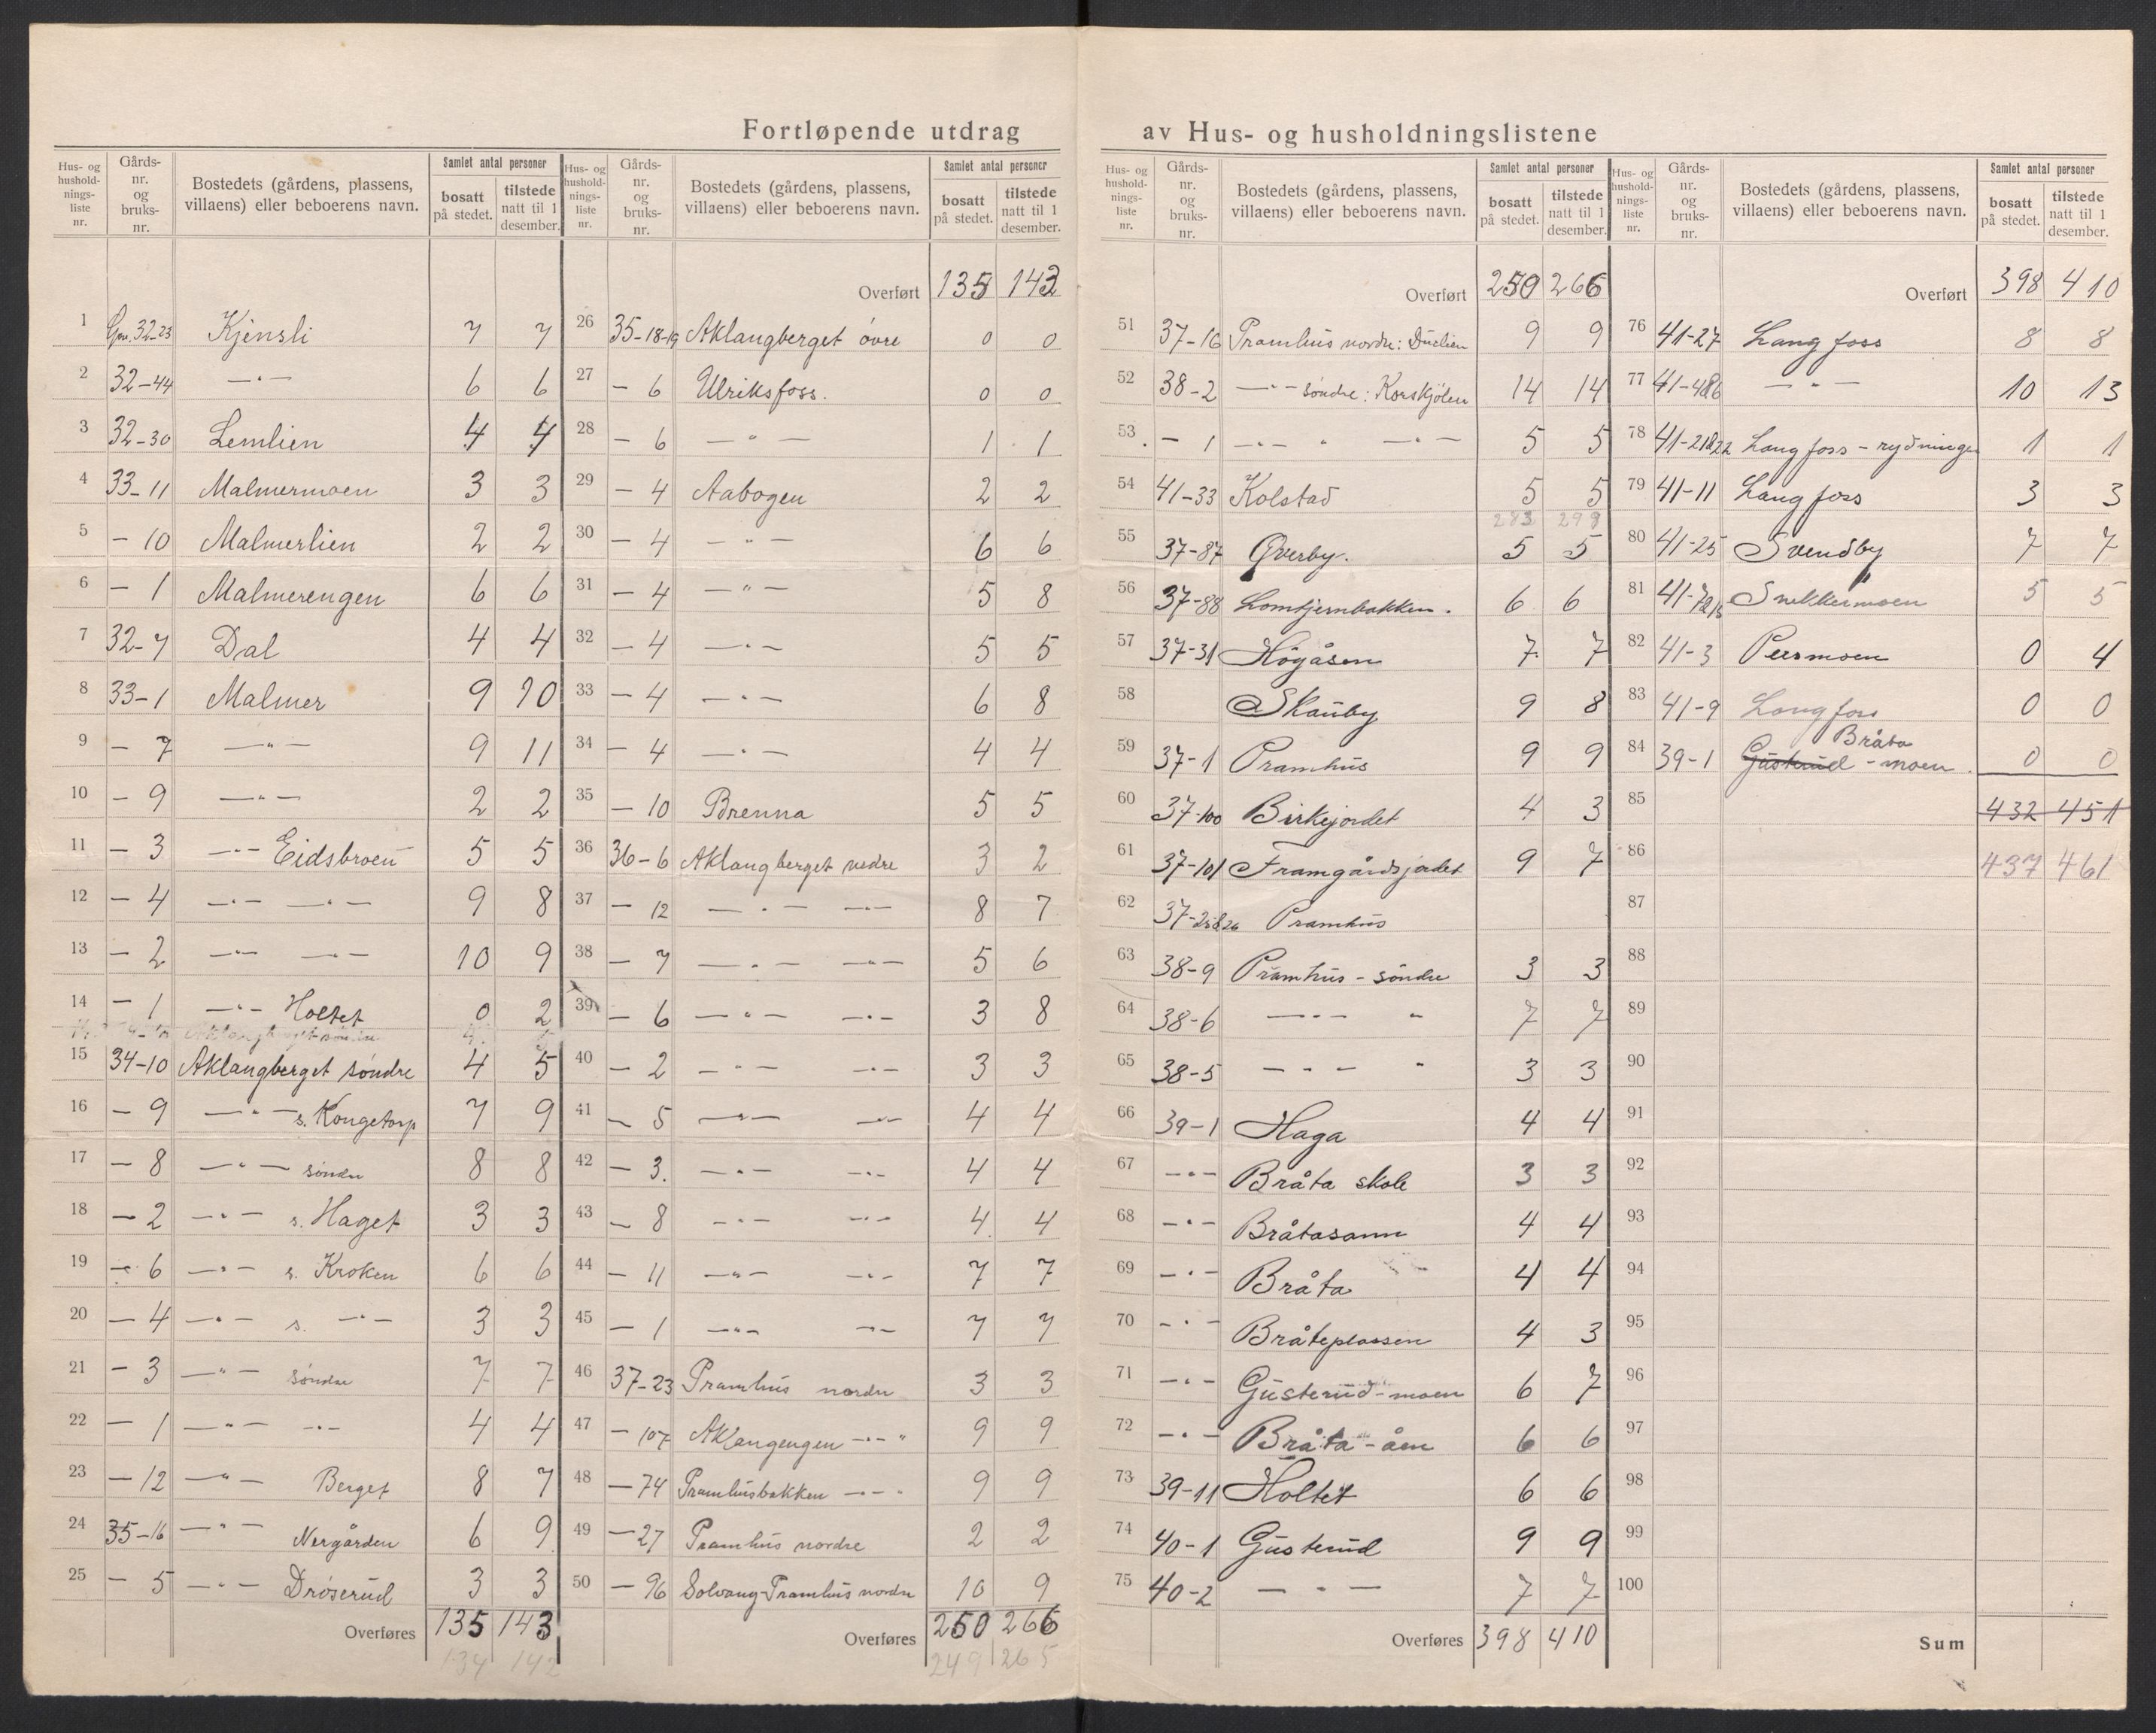 Fortløpende utdrag av Hus- og husholdningslistene
Hus- og husholdnings-liste nr. Gårds-nr. og bruks-nr. Bostedets (gårdens, plassens, villaens) eller beboerens navn. Samlet antal personer bosatt på stedet. tilstede natt til 1 desember.
1 Gnr. 32-23 Kjensli 7 7
2 32-44 —"— 6 6
3 32-30 Lemlien 4 4
4 33-11 Malmermoen 3 3
5 - 10 Malmerlien 2 2
6 - 1 Malmerengen 6 6
7 32-7 Dal 4 4
8 33-1 Malmer 9 10
9 - 7 —"— 9 11
10 - 9 —"— 2 2
11 - 3 —"— Eidsbroen 5 5
12 - 4 —"— —"— 9 8
13 - 2 —"— —"— 10 9
14 - 1 —"— Holtet 0 2
15 34-10 Aklangberget søndre 4 5
16 - 9 —"— s. Kongetorp 7 9
17 - 8 —"— søndre 8 8
18 - 2 —"— s. Haget 3 3
19 - 6 —"— s. Kroken 6 6
20 - 4 —"— s. —"— 3 3
21 - 3 —"— søndre 7 7
22 - 1 —"— —"— 4 4
23 - 12 —"— Berget 8 7
24 35-16 —"— Nergården 6 9
25 - 5 —"— Drøserud 3 3
Overføres 135 143
134 142
Hus- og husholdnings-liste nr. Gårds-nr. og bruks-nr. Bostedets (gårdens, plassens, villaens) eller beboerens navn. Samlet antal personer bosatt på stedet. tilstede natt til 1 desember.
Overført 135 143
26 35-18-19 Aklangberget övre 0 0
27 - 6 Ulriksfoss. 0 0
28 - 6 —"— 1 1
29 - 4 Aabogen 2 2
30 - 4 —"— 6 6
31 - 4 —"— 5 8
32 - 4 —"— 5 5
33 - 4 —"— 6 8
34 - 4 —"— 4 4
35 - 10 Brenna 5 5
36 36-6 Aklangberget nedre 3 2
37 - 12 —"— —"— 8 7
38 - 7 —"— —"— 5 6
39 - 6 —"— —"— 3 8
40 - 2 —"— —"— 3 3
41 - 5 —"— —"— 4 4
42 - 3. —"— —"— 4 4
43 - 8 —"— —"— 4 4
44 - 11 —"— —"— 7 7
45 - 1 —"— —"— 7 7
46 37-23 Pramhus nordre 3 3
47 - 107 Aklangengen —"— " 9 9
48 - 74 Pramhusbakken —"— " 9 9
49 - 27 Pramhus nordre 2 2
50 - 96 Solvang-Pramhus nordre 10 9
Overføres 250 266
249 265
Hus- og husholdnings-liste nr. Gårds-nr. og bruks-nr. Bostedets (gårdens, plassens, villaens) eller beboerens navn. Samlet antal personer bosatt på stedet. tilstede natt til 1 desember.
Overført 250 266
51 37-16 Pramhus nordre: 9 9
52 38-2 —"— søndre: Korskjølen 14 14
53 - 1 —"— " —"— 5 5
54 41-33 Kolstad 5 5
283 299
55 37-87 Øverby. 5 5
56 37-88 Lomtjernbakken. 6 6
57 37-31 Högåsen 7 7
58 Skauby 9 8
59 37-1 Pramhus 9 9
60 37-100 Birkejordet 4 3
61 37-101 Framgårdsjordet 9 7
62 37-25&26 Pramhus
63 38-9 Pramhus - söndre 3 3
64 38-6 —"— " 7 7
65 38-5 —"— " 3 3
66 39-1 Haga 4 4
67 —"— Bråta skole 3 3
68 —"— Bråtasann 4 4
69 —"— Bråta 4 4
70 —"— Bråteplassen 4 3
71 —"— Gusterud-moen 6 7
72 —"— Bråta-åen 6 6
73 39-11 Holtet 6 6
74 40-1 Gusterud 9 9
75 40-2 —"— 7 7
Overføres 398 410
Hus- og husholdnings-liste nr. Gårds-nr. og bruks-nr. Bostedets (gårdens, plassens, villaens) eller beboerens navn. Samlet antal personer bosatt på stedet. tilstede natt til 1 desember.
Overført 398 410
76 41-27 Langfoss 8 8
77 —"— 10 13
78 41-21&22 Langfoss - rydningen 1 1
79 41-11 Langfoss 3 3
80 41-25 Svendby 7 7
81 Snekkermoen 5 5
82 41-3 Peersmoen 0 4
83 41-9 Langfoss 0 0
84 39-1 Gusterud Bråta - moen. 0 0
85 432 451
86 437 461
87
88
89
90
91
92
93
94
95
96
97
98
99
100
Sum